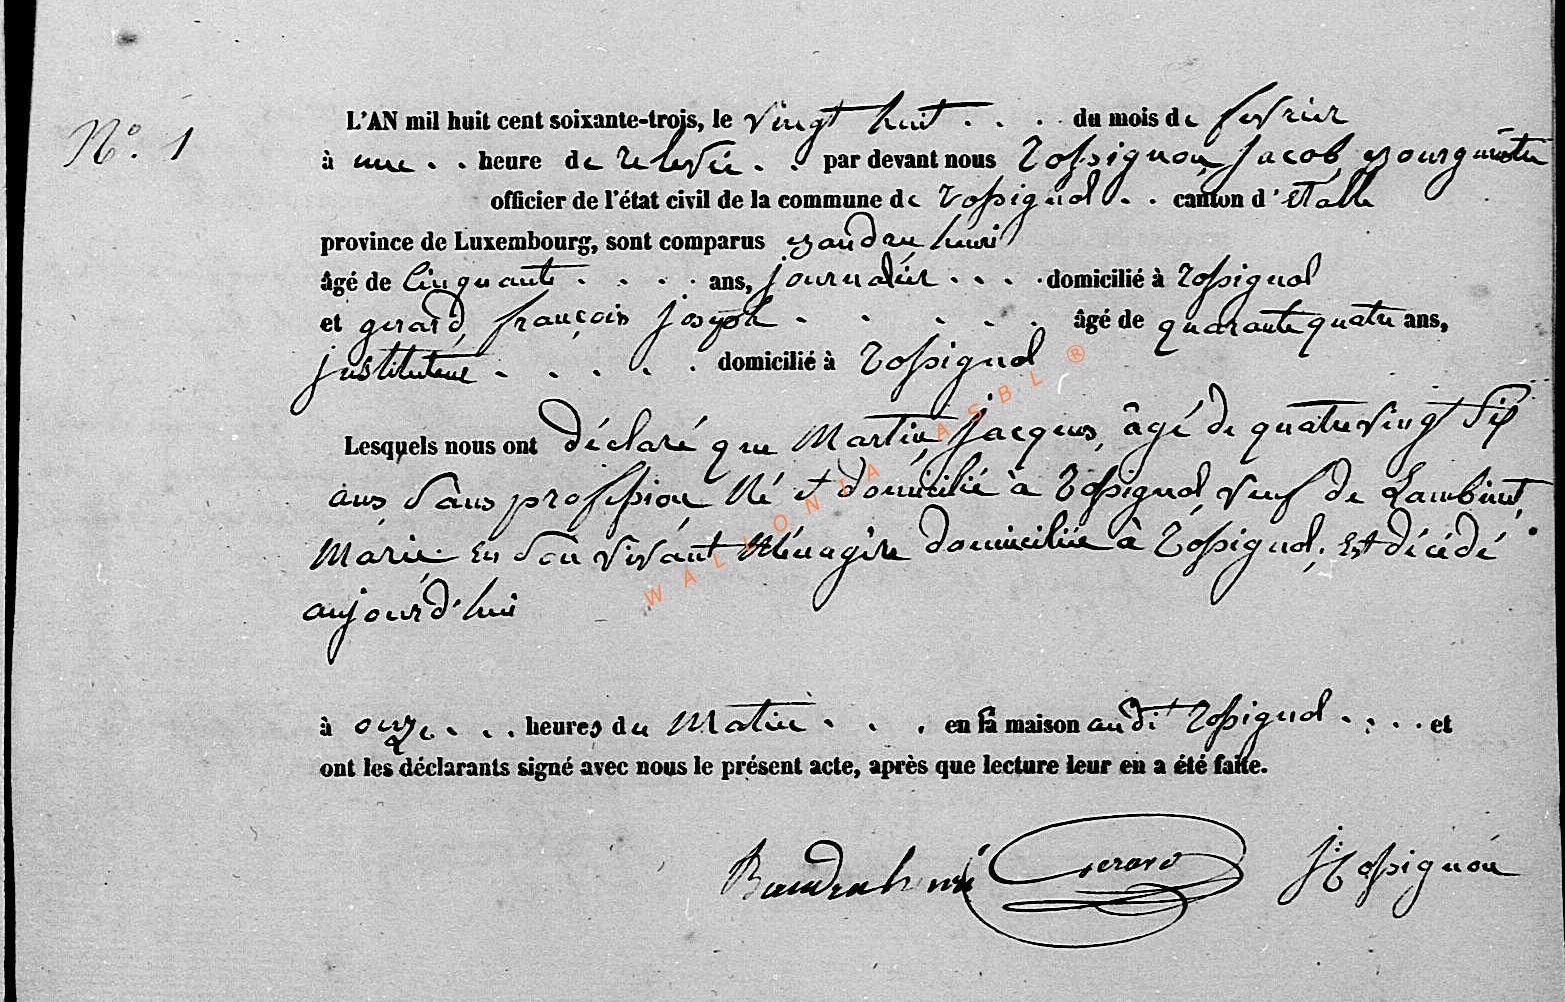 N.° 1
L'AN mil huit cent soixante-trois, le vingt huit . . . du mois de fevrier
à une . . heure de relevée . . par devant nous Rossignon Jacob, Bourgmestre
officier de l'état civil de la commune de Rossignol . . canton d'Etalle
province de Luxembourg, sont comparus Baudru henri
âgé de Cinquante . . . . ans, journalier . . . . domicilié à Rossignol
et gerard françois joseph . . . . . . âgé de quarante quatre ans,
justituteur . . . . . domicilié à Rossignol
Lesquels nous ont déclaré que Martin, Jacques, âgé de quatre vingt six
ans sans profession Né et domicilié à Rossignol veuf de Lambinet,
Marie en son vivant Ménagère domiciliée à Rossignol, Est décédé
aujourd'hui
à onze . . . heures du Matin . . . en sa maison audit Rossignol . . . . et
ont les déclarants signé avec nous le présent acte, après que lecture leur en a été faite.
Baudru henri Gerard J Rossignon
WALLONIA ASBL ®